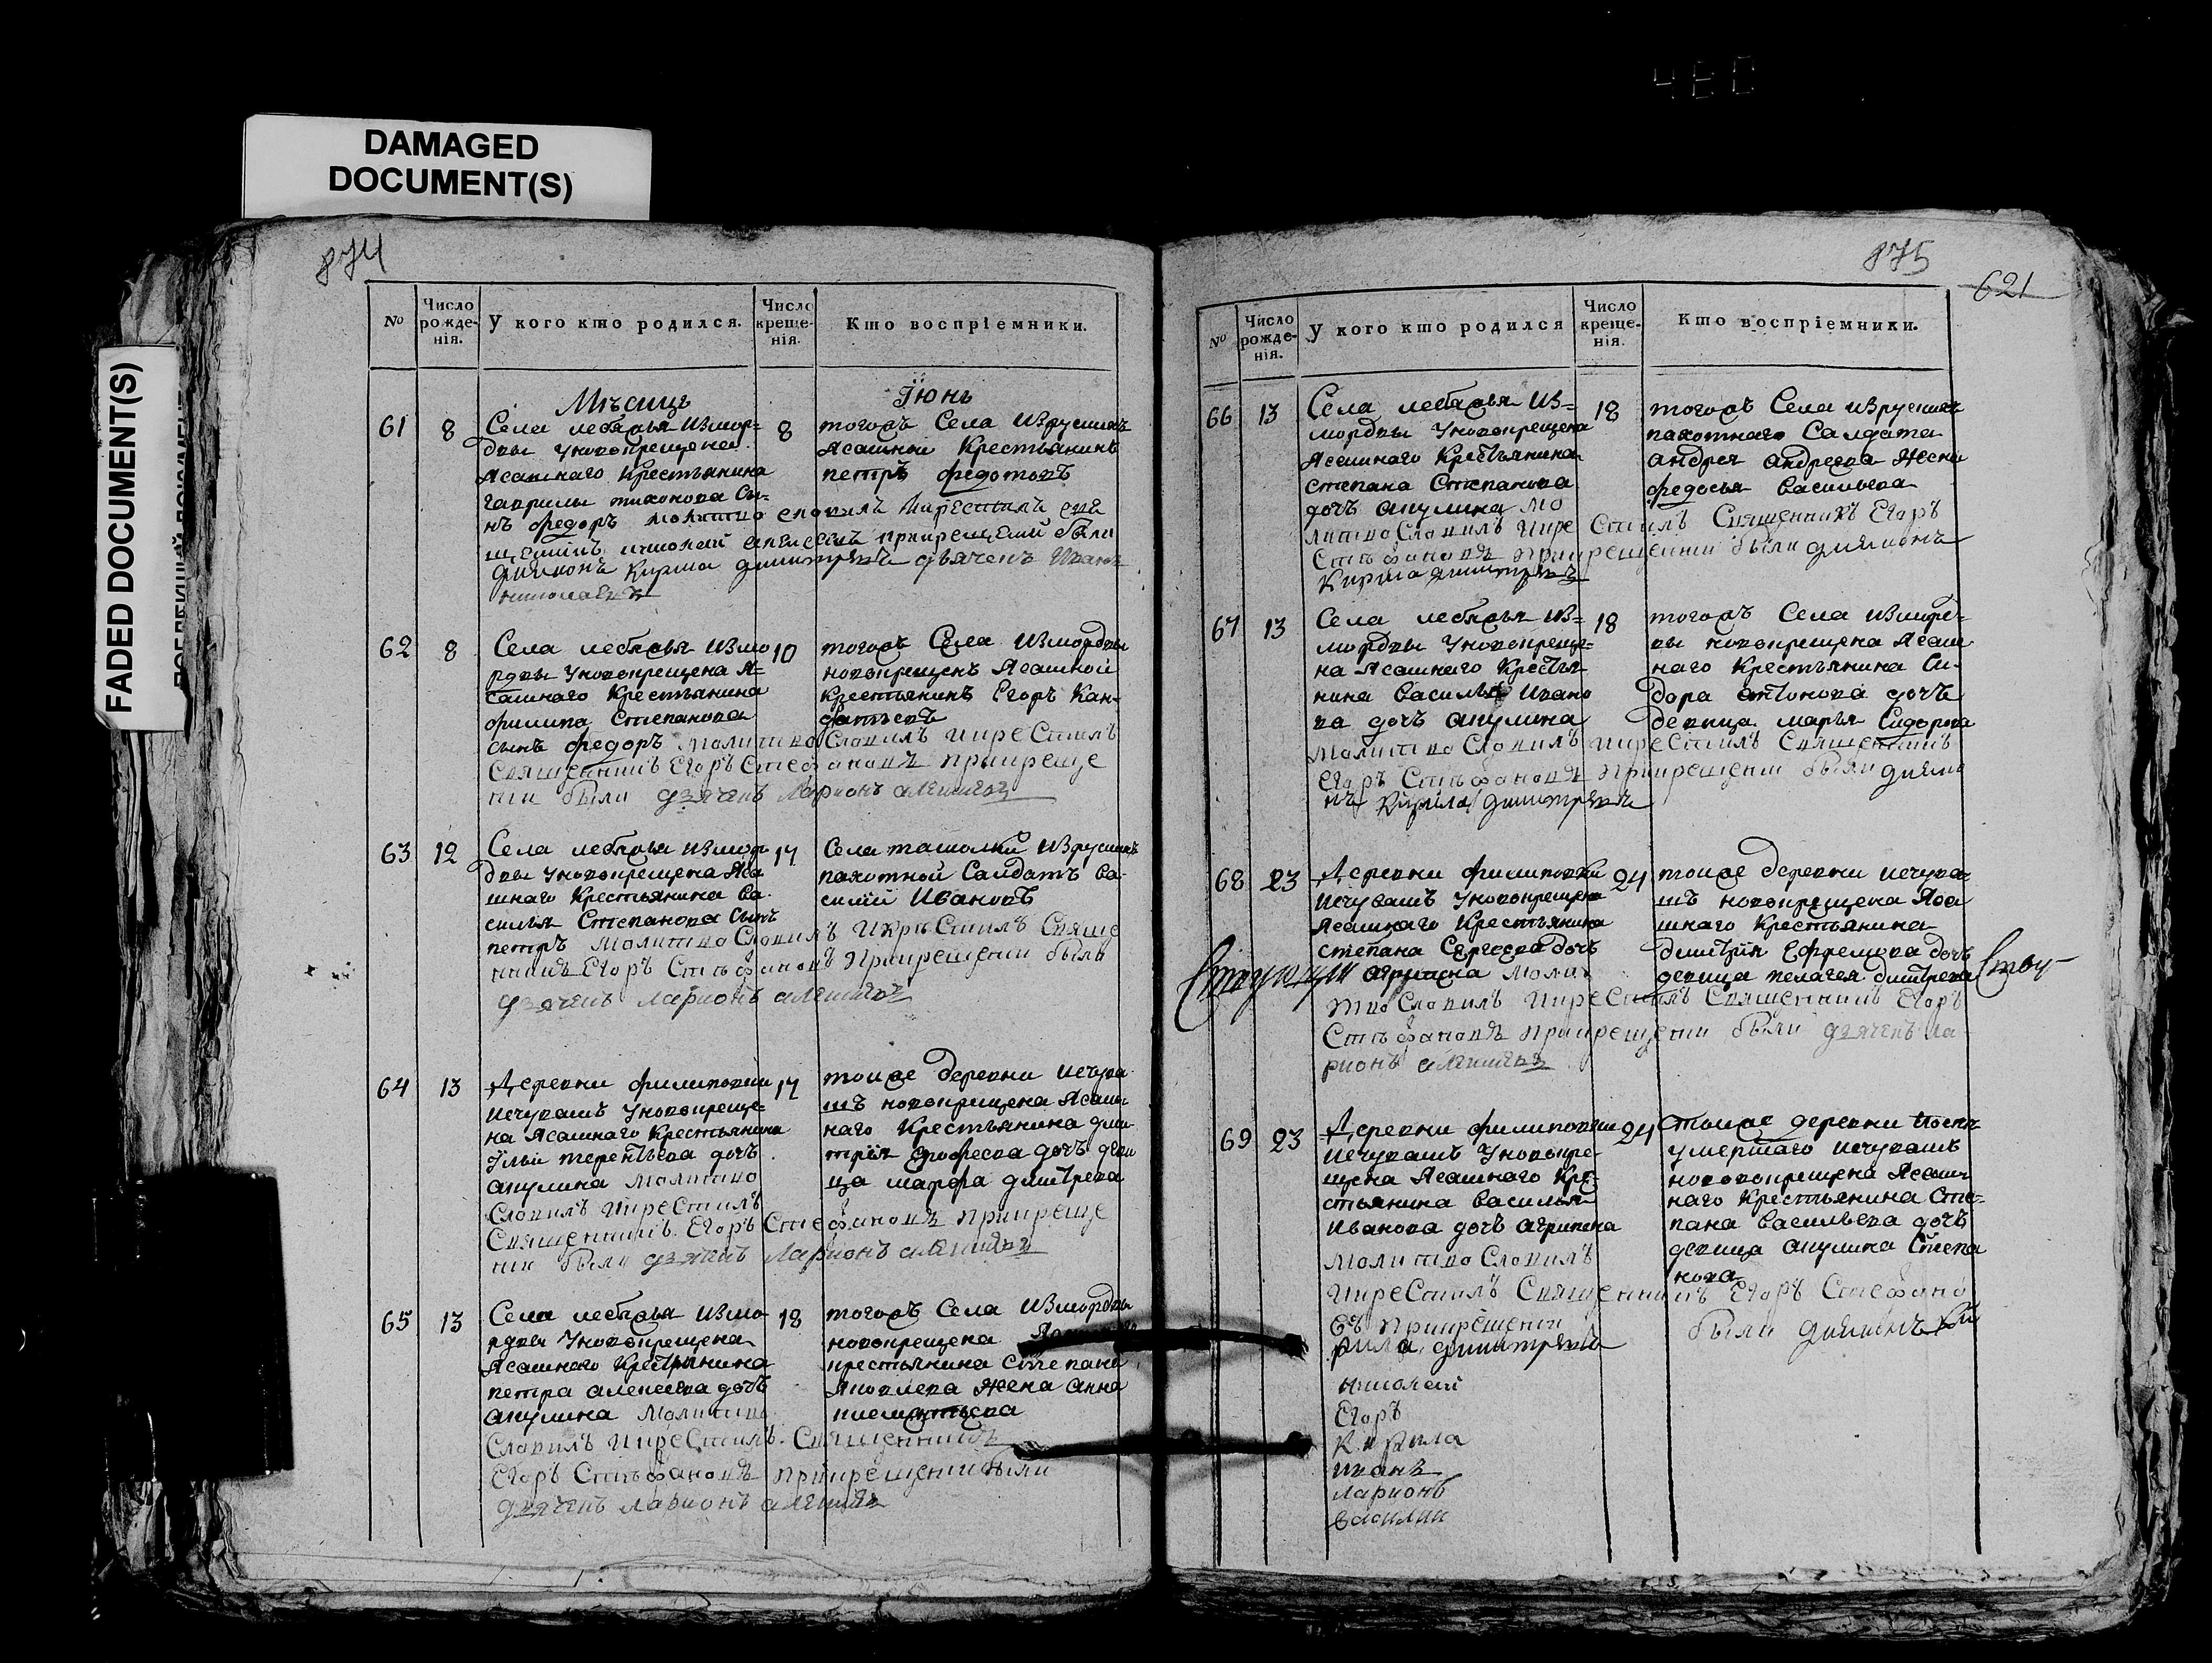 DAMAGED
DOCUMENT(S)
FADED DOCUMENT(S)
874
№
Число рожденія.
У кого кто родился.
Число крещенія.
Кто воспріемники.
Мѣсяцъ
Іюнь
61
8
Села лебяжья измор=
двы уновокрещена
Ясашнаго Крестьянина
гаврилы тихонова Сы=
нъ федоръ молитво словилъ икрестилъ свя
щенникъ николай алексеевъ прикрещении были
дияконъ Кирила димитревъ дьячекъ Иванъ
николаевъ
8
тогожъ Села изруских
Ясашной Крестьянинъ
петръ федотовъ
62
8
Села лебяжья измо
рдвы уновокрещена я=
сашнаго Крестьянина
филипа Степанова
сынъ федоръ молитво словилъ икрестилъ
Священникъ Егоръ Стефановъ прикреще
нии были дьячекъ Ларионъ
10
тогожъ Села измордвы
новокрещенъ Ясашной
Крестьянинъ Егоръ Кан=
63
12
Села лебяжья измор
двы уновокрещена Яса
шнаго Крестьянина Ва
силья Степанова Сынъ
петръ молитво словилъ икрестилъ Свяще
нникъ Егоръ Стефановъ прикрещении были
дьячекъ Ларионъ
14
Села ташолки изруских
пахотной Салдатъ Ва
силий Ивановъ
64
13
Деревни филиповки
ичувашъ уновокреще=
на Ясашнаго Крестьянина
Ильи терентьева дочь
акулина молитво
словилъ икрестилъ
Священникъ Егоръ Стефановъ прикреще
нии были дьячекъ Ларионъ
14
тоиже деревни ичува
шъ новокрещена Ясаш
наго Крестьянина дми
трия дочь деви
ца марфа дмитрева
65
13
Села лебяжья измо
рдвы уновокрещена
Ясашнаго Крестьянина
петра алексеева дочь
акулина молитво
словилъ икрестилъ Священникъ
Егоръ Стефановъ прикрещении были
дьячекъ Ларионъ
18
тогожъ Села измордвы
новокрещена
крестьянина Степана
Яковлева Жена анна
875
621
№
Число рожденія.
У кого кто родился
Число крещенія.
Кто воспріемники.
66
13
Села лебяжья из=
мордвы уновокрещена
Ясашнаго Крестьянина
степана Степанова
дочь акулина мо
литво словилъ икрестилъ Священникъ Егоръ
Стефановъ прикрещении были дияконъ
Кирила димитревъ
18
тогожъ Села изруских
пахотнаго Салдата
андрея андреева Жена
федосья Васильева
67
13
Села лебяжья из=
мордвы уновокреще=
на Ясашнаго Крестья
нина Василья Ивано
ва дочь акулина
молитво словилъ икрестилъ Священникъ
Егоръ Стефановъ прикрещении были дияко
нъ Кирила димитревъ
18
тогожъ Села измор=
вы новокрещена Ясаш
наго Крестьянина Си=
дора антонова дочь
девица марья Сидорова
68
23
Деревни филиповки
ичувашъ уновокрещена
Ясашнаго Крестьянина
степана Сергеева дочь
агрипена молит
тво словилъ икрестилъ Священникъ Егоръ
Стефановъ прикрещении были дьячекъ ла
рионъ
24
тоиже деревни ичува
шъ новокрещена Яса
шнаго Крестьянина
дмитрия Ефремова дочь
девица пелагея дмитрева
69
23
Деревни филиповки
ичувашъ уновокре=
щена Ясашнаго Кре=
стьянина Василья
Иванова дочь агрипена
молитво словилъ
икрестилъ Священникъ Егоръ Стефано
въ прикрещении были дияконъ Ки
рила димитревъ
24
тоиже деревни
умершаго ичувашъ
новокрещена Ясаш
наго Крестьянина Сте=
пана Васильева дочь
девица акулина Степа
нова
николай
Егоръ
Кирила
иванъ
ларионъ
василии